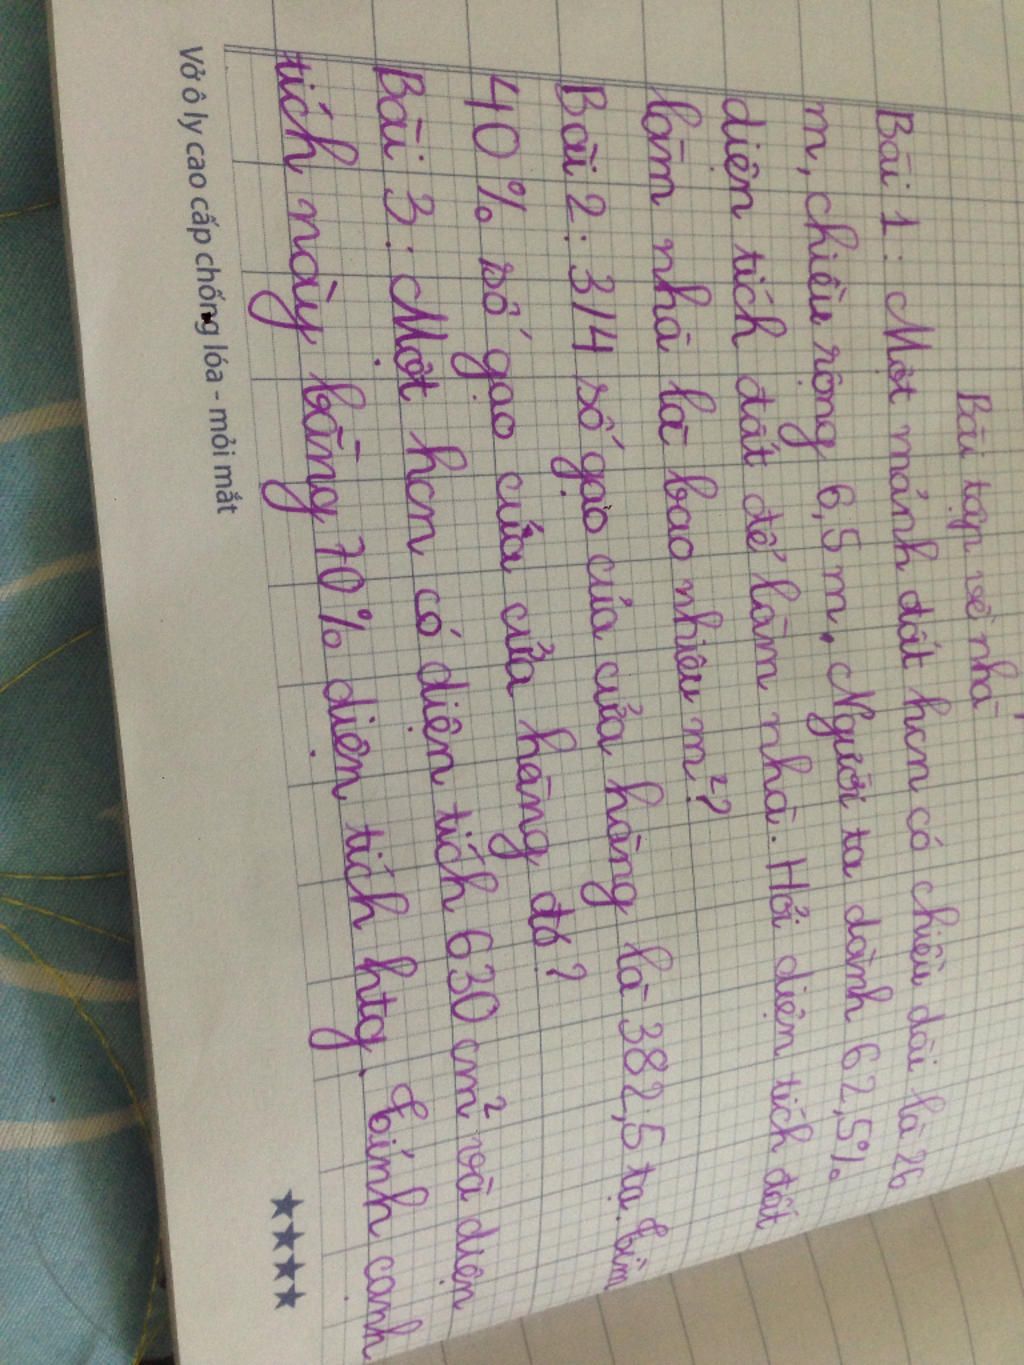 Bài tập về nhà
Bài 1: Một mảnh đất hcn có chiều dài là 26
m, chiều rộng 6,5 m. Người ta dành 62,5%
diện tích đất để làm nhà. Hỏi diện tích đất
làm nhà là bao nhiêu m²?
Bài 2: 3/4 số gạo của cửa hàng là 382,5 tạ. Tìm
40% số gạo của cửa hàng đó?
Bài 3: Một hcn có diện tích 630 cm² và diện
tích này bằng 70% diện tích htg. Tính cạnh
Vở ô ly cao cấp chống lóa - mỏi mắt